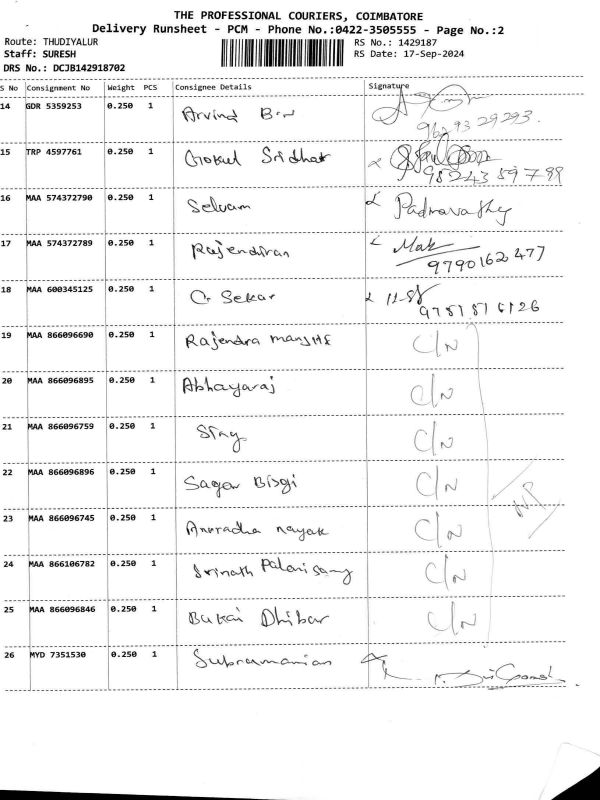 THE PROFESSIONAL COURIERS, COIMBATORE
Delivery Runsheet - PCM - Phone No.:0422-3505555 - Page No.:2
Route: THUDIYALUR RS No.: 1429187
Staff: SURESH RS Date: 17-Sep-2024
DRS No.: DCJB142918702
S No Consignment No Weight PCS Consignee Details Signature
14 GDR 5359253 0.250 1 Arvind
15 TRP 4597761 0.250 1 Gokul Sridhar
98243 59789
16 MAA 574372790 0.250 1 Selvam Padmavathy
17 MAA 574372789 0.250 1 Rajendiran
9790162477
18 MAA 600345125 0.250 1 G. Sekar
19 MAA 866096690 0.250 1 Rajendra C/N
20 MAA 866096895 0.250 1 Abhayaraj C/N
21 MAA 866096759 0.250 1 C/N
22 MAA 866096896 0.250 1 Sagar Bisgi C/N
23 MAA 866096745 0.250 1 Anuradha nayak C/N
24 MAA 866106782 0.250 1 Srinath Palanisamy C/N
25 MAA 866096846 0.250 1 Bukai Dhibar C/N
26 MYD 7351530 0.250 1 Subramanian